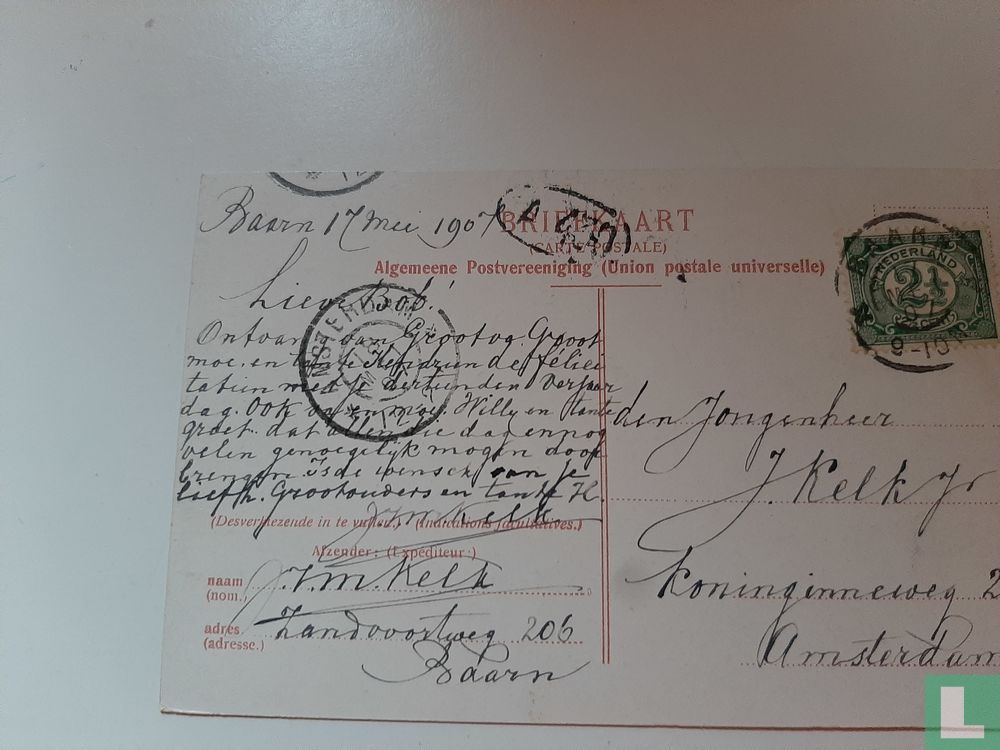 Baarn 17 Mei 1907
BRIEFKAART
(CARTE POSTALE)
Algemeene Postvereeniging (Union postale universelle)
BAARN
NEDERLAND
2½
9-10
AMSTERDAM
Lieve Bob!
Ontvang van Grootva. Groot
moe. en tante de felici
tatien met je verjaar
dag. Ook oom en moe. Willy en tante
groet. dat allen die dag en nog
velen genoegelijk mogen door
brengen is de wensch van je
liefh. Grootouders en tante H.
J M Kelk
(Desverkiezende in te vullen.) (Indications facultatives.)
Afzender: (Expéditeur:)
naam J. M. Kelk
(nom.)
adres Zandvoortweg 206
(adresse.)
Baarn
den Jongenheer
J. Kelk Jr
Koninginneweg 2
Amsterdam
L